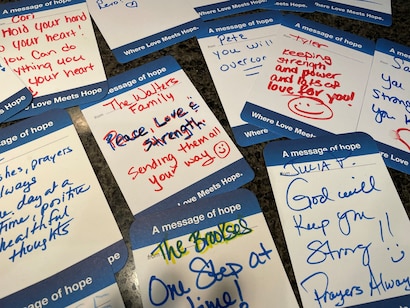 A message of hope
Cori
Hold your hand
to your heart!
You Can do
anything you
your heart
A message of hope
Where Love Meets Hope.
Where Love Meets Hope.
Pete
you will
overcome
Where Love Meets Hope.
A message of hope
Tyler
Keeping
strength
and power
and lots of
love for you!
A message of hope
A message of hope
The Walters
Family
Peace Love &
Strength.
Sending them all
your way
Love Meets Hope.
A message of hope
prayers
always
day at a
time! positive
healthful
thoughts
A message of hope
The Brookses
One Step at
time!
A message of hope
Julia F.
God will
Keep you
Strong!!
Prayers Always
A message
S
you
St
h